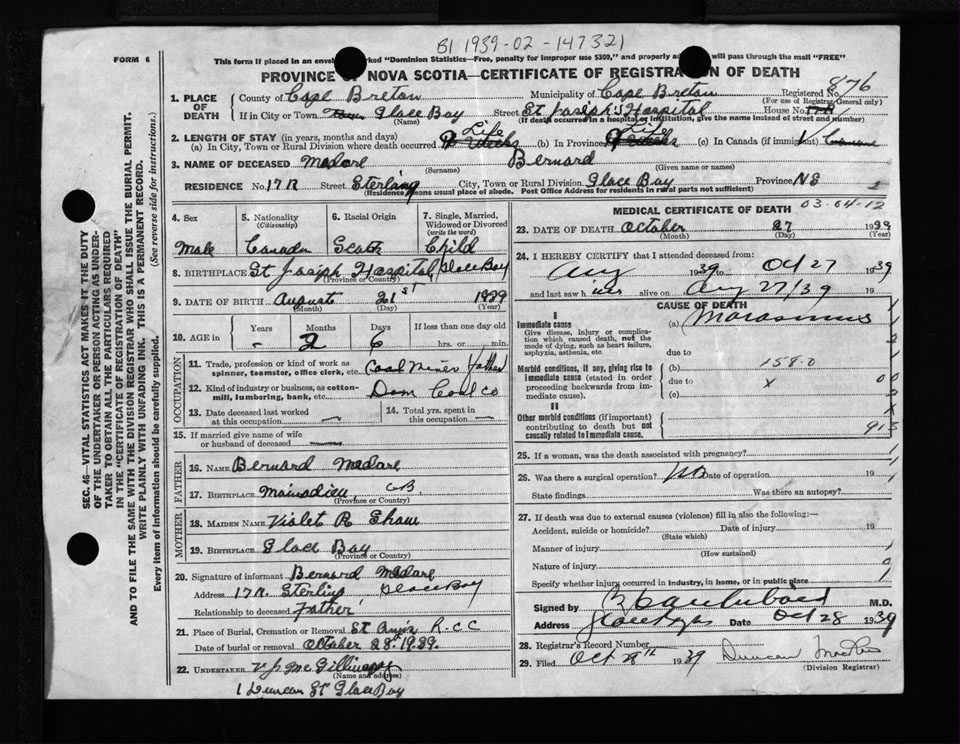 B1 1939-02-147321
FORM 6
This form if placed in an envelope marked "Dominion Statistics—Free, penalty for improper use $300," and properly addressed will pass through the mail "FREE"
PROVINCE OF NOVA SCOTIA—CERTIFICATE OF REGISTRATION OF DEATH
876
SEC. 46—VITAL STATISTICS ACT MAKES IT THE DUTY
OF THE UNDERTAKER OR PERSON ACTING AS UNDER-
TAKER TO OBTAIN ALL THE PARTICULARS REQUIRED
IN THE "CERTIFICATE OF REGISTRATION OF DEATH"
AND TO FILE THE SAME WITH THE DIVISION REGISTRAR WHO SHALL ISSUE THE BURIAL PERMIT.
WRITE PLAINLY WITH UNFADING INK. THIS IS A PERMANENT RECORD.
Every item of Information should be carefully supplied. (See reverse side for instructions.)
1. PLACE OF DEATH
County of Cape Breton Municipality of Cape Breton Registered No.
(For use of Registrar-General only)
If in City or Town Glace Bay Street St Joseph's Hospital House No.
(Name) (If death occurred in a hospital or institution, give the name instead of street and number)
2. LENGTH OF STAY (in years, months and days)
(a) In City, Town or Rural Division where death occurred Life (b) In Province Life (c) In Canada (if immigrant)
3. NAME OF DECEASED Madore Bernard
(Surname) (Given name or names)
RESIDENCE No. 17 R Street Sterling City, Town or Rural Division Glace Bay Province NS
(Residence means usual place of abode. Post Office Address for residents in rural parts not sufficient)
4. Sex
Male
5. Nationality
(Citizenship)
6. Racial Origin
Scotch
7. Single, Married,
Widowed or Divorced
(write the word)
Child
8. BIRTHPLACE St Joseph Hospital Glace Bay
(Province or Country)
9. DATE OF BIRTH August 21st 1939
(Month) (Day) (Year)
10. AGE in Years - Months 2 Days 6 If less than one day old
hrs. or min.
OCCUPATION
11. Trade, profession or kind of work as
spinner, teamster, office clerk, etc. Coal Miner Father
12. Kind of industry or business, as cotton-
mill, lumbering, bank, etc. Dom Coal Co
13. Date deceased last worked
at this occupation —
14. Total yrs. spent in
this occupation —
15. If married give name of wife
or husband of deceased —
FATHER
16. NAME Bernard Madore
17. BIRTHPLACE Mainadieu CB
(Province or Country)
MOTHER
18. MAIDEN NAME Violet R Shaw
19. BIRTHPLACE Glace Bay
(Province or Country)
20. Signature of informant Bernard Madore
Address 17 R. Sterling Glace Bay
Relationship to deceased Father
21. Place of Burial, Cremation or Removal St Anns R.C.C
Date of burial or removal October 28th 1939.
22. UNDERTAKER V J McGillivray
(Name and address)
1 Duncan St Glace Bay
MEDICAL CERTIFICATE OF DEATH
03-04-12
23. DATE OF DEATH October 27 1939
(Month) (Day) (Year)
24. I HEREBY CERTIFY that I attended deceased from:
Aug 1939 to Oct 27 1939
and last saw h alive on Aug 27/39 19
CAUSE OF DEATH
I
Immediate cause
Give disease, injury or complica-
tion which caused death, not the
mode of dying, such as heart failure,
asphyxia, asthenia, etc.
(a) Marasmus
due to
Morbid conditions, if any, giving rise to
immediate cause (stated in order
proceeding backwards from im-
mediate cause).
(b) 158.0
due to x
(c)
II
Other morbid conditions (if important)
contributing to death but not
causally related to immediate cause.
25. If a woman, was the death associated with pregnancy?
26. Was there a surgical operation? No Date of operation 19
State findings Was there an autopsy?
27. If death was due to external causes (violence) fill in also the following:—
Accident, suicide or homicide? Date of injury 19
(State which)
Manner of injury
(How sustained)
Nature of injury
Specify whether injury occurred in industry, in home, or in public place
Signed by M.D.
Address Date Oct 28 1939
28. Registrar's Record Number
29. Filed Oct 1939 Duncan
(Division Registrar)